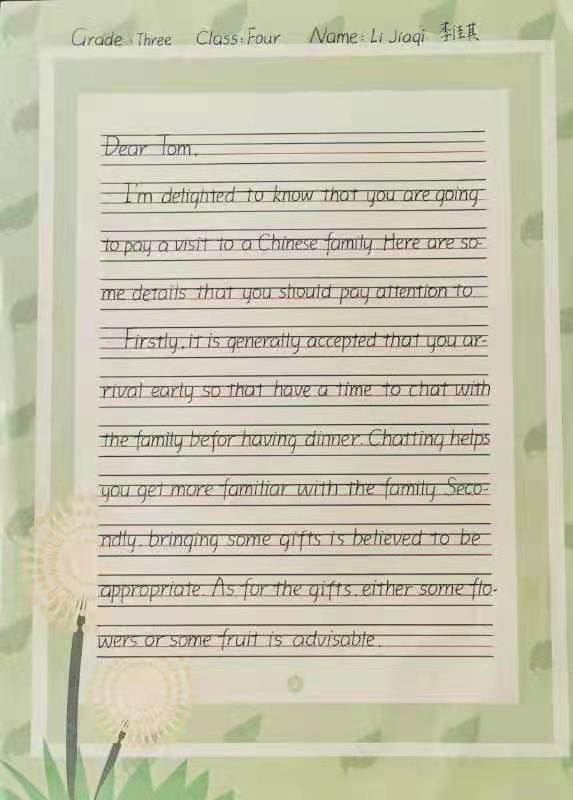 Grade: Three Class: Four Name: Li Jiaqi 李佳其
Dear Tom,
I'm delighted to know that you are going
to pay a visit to a Chinese family. Here are so-
me details that you should pay attention to.
Firstly, it is generally accepted that you ar-
rival early so that have a time to chat with
the family befor having dinner. Chatting helps
you get more familiar with the family. Seco-
ndly, bringing some gifts is believed to be
appropriate. As for the gifts, either some flo-
wers or some fruit is advisable.